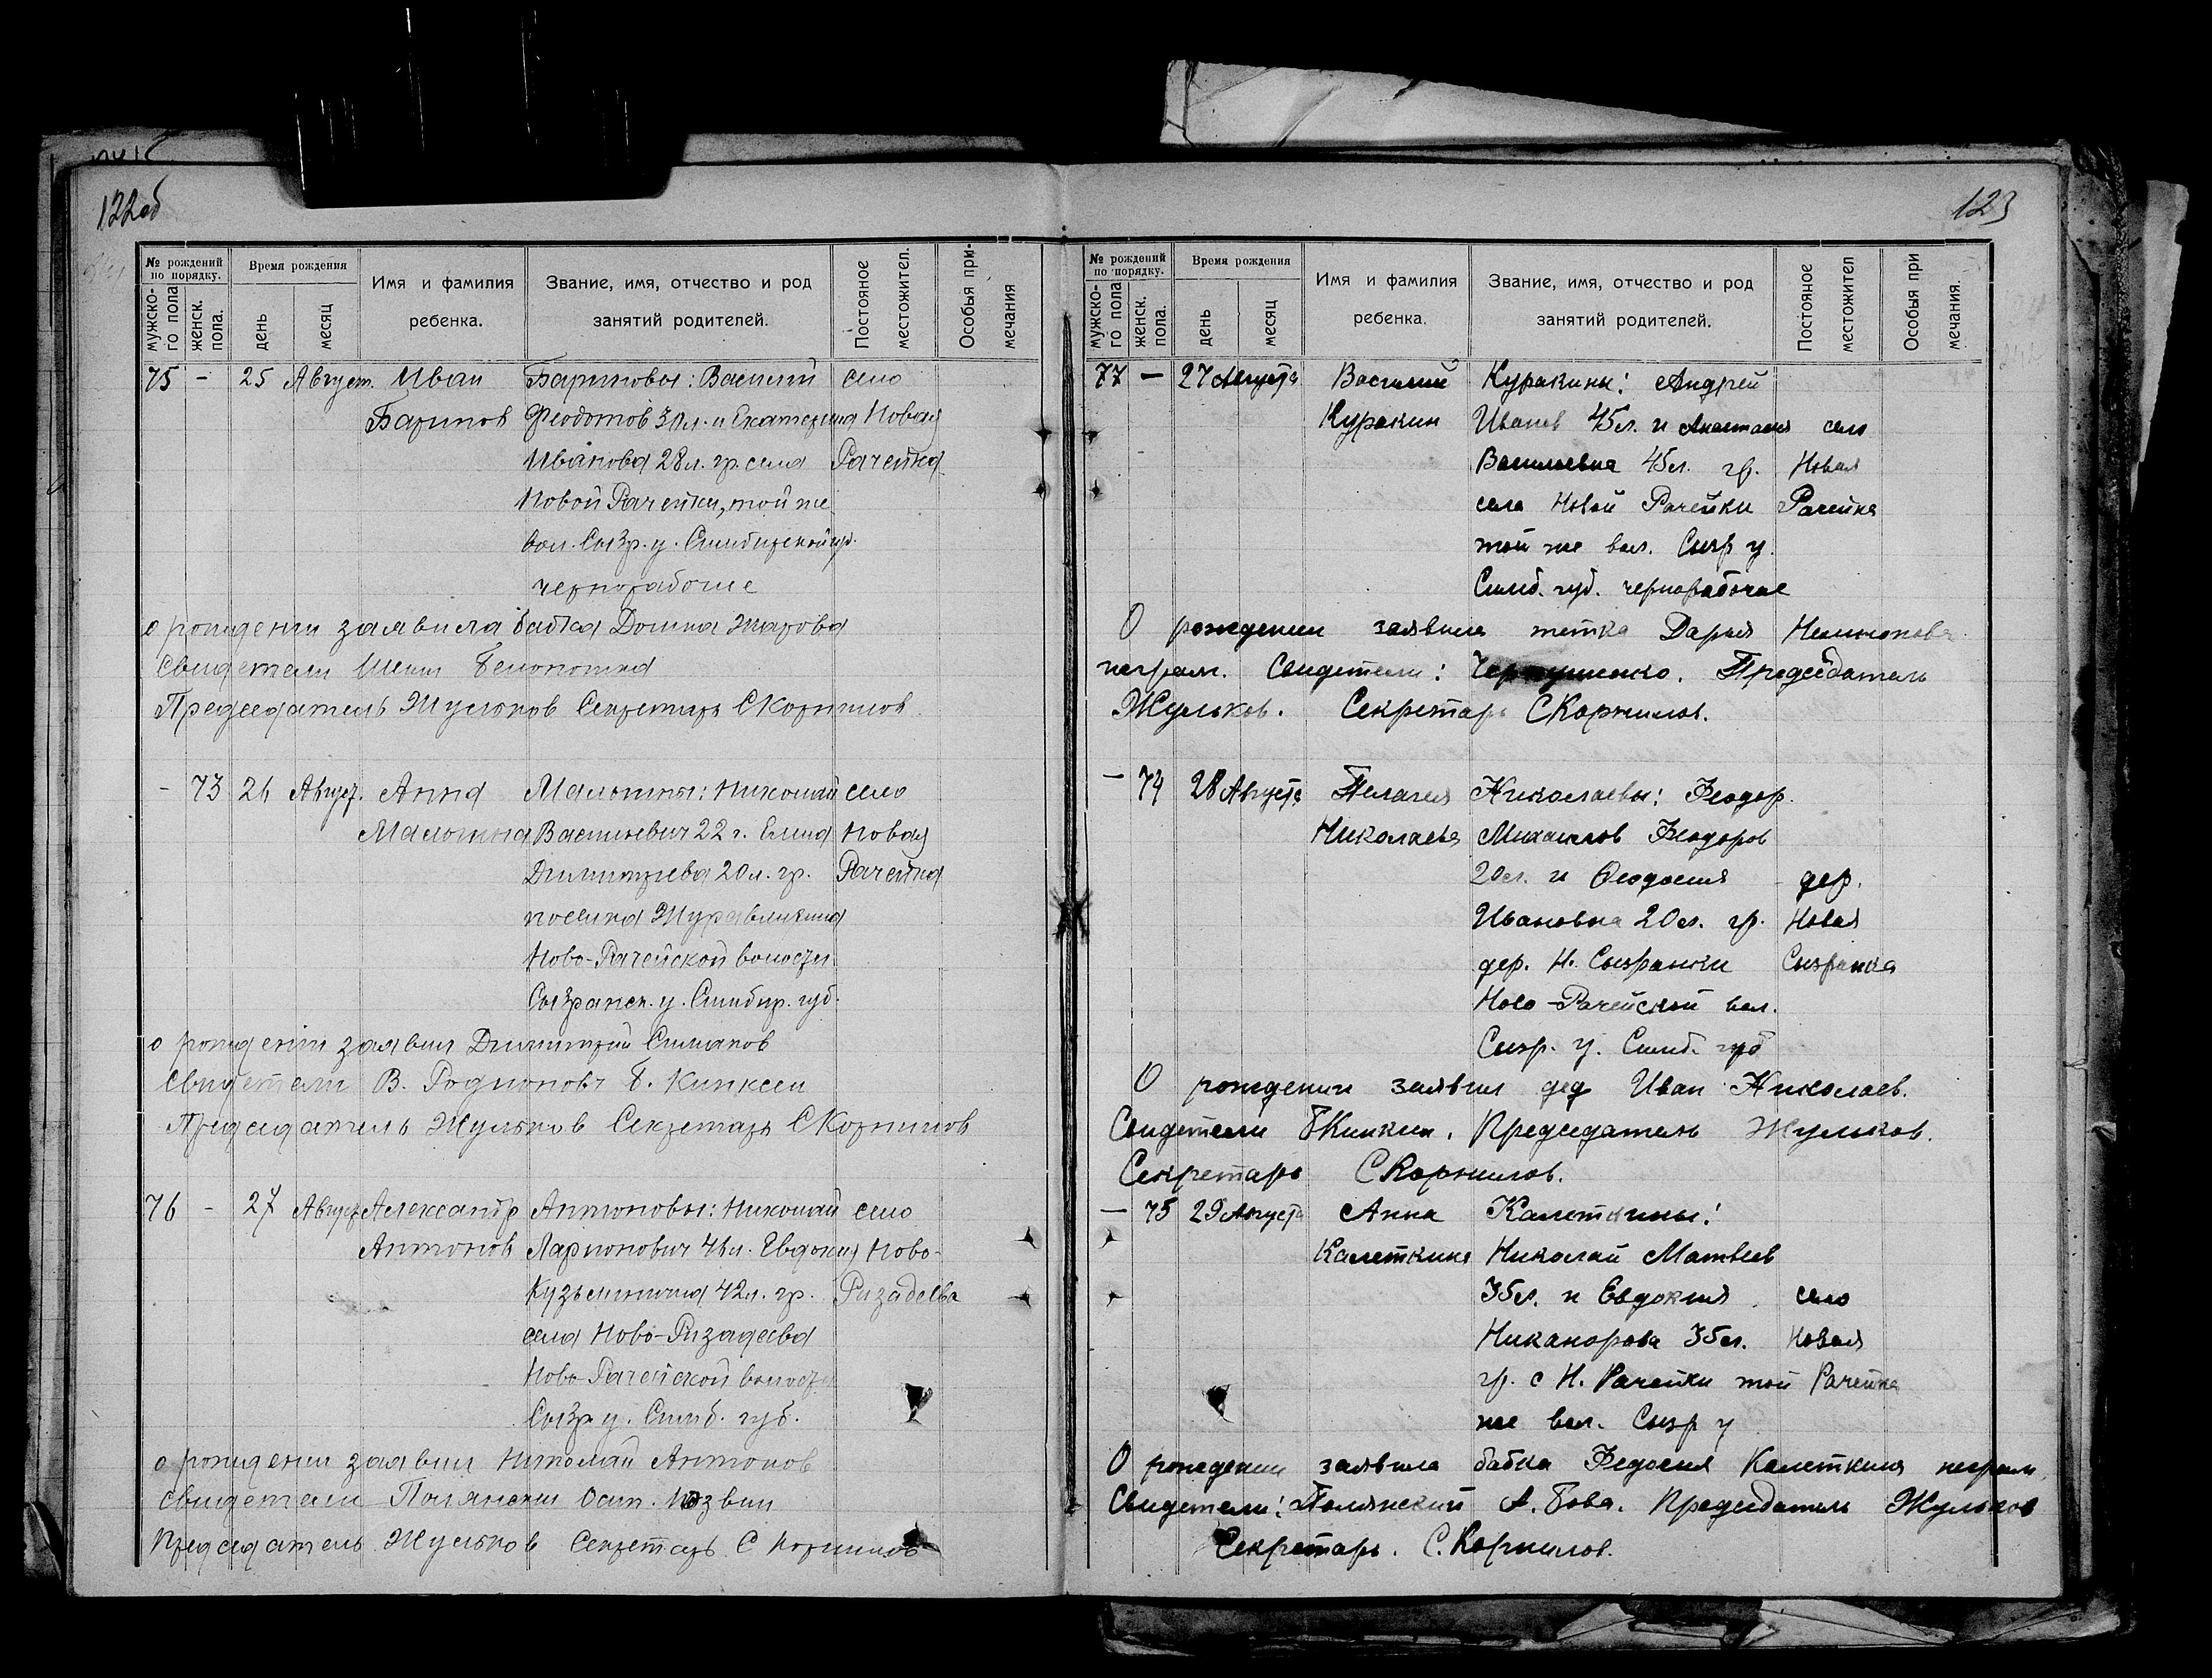 122об
№ рождений по порядку.
мужско-го пола
женск. пола.
Время рождения
день
месяц
Имя и фамилия ребенка.
Звание, имя, отчество и род занятий родителей.
Постояное местожител.
Особыя при-мечания
75 - 25 Август. Иван Бариновы: Василий село
Баринов Феодотов 30 л. и Екатерина Новая
Иванова 28 л. гр. села Рачейка
Новой Рачейки, той же
вол. Сызр. у. Симбирской гр.
чернорабочие
о рождении заявила бабка Домна Жарова
свидетели
Председатель Жульков Секретарь С Корнилов
- 73 26 Август. Анна Малютины: Николай село
Малютина Васильевич 22 г. Елена Новая
Димитриева 20 л. гр. Рачейка
поселка Журавлихина
Ново-Рачейской волости
Сызранск. у. Симбир. губ.
о рождении заявил Димитрий Симаков
свидетели В. Родионов Б. Кинксен
Председатель Жульков Секретарь С Корнилов
76 - 27 Август Александр Антоновы: Николай село
Антонов Ларионович 46 л. Евдокия Ново-
Кузьминична 42 л. гр. Ризадеева
села Ново-Ризадеева
Ново-Рачейской волости
Сызр у. Симб. губ.
о рождении заявил Николай Антонов
свидетели Полянский
Председатель Жульков Секретарь С Корнилов
123
№ рождений по порядку.
мужско-го пола
женск. пола.
Время рождения
день
месяц
Имя и фамилия ребенка.
Звание, имя, отчество и род занятий родителей.
Постояное местожител
Особыя при мечания.
77 — 27 Августа Василий Куракины: Андрей
Куракин Иванов 45 л. и Анастасия село
Васильевна 45 л. гр. Новая
села Новой Рачейки Рачейка
той же вол. Сызр у.
Симб. губ. чернорабочие
О рождении заявила тетка Дарья
неграм. Свидетели: Председатель
Жульков. Секретарь С Корнилов.
— 74 28 Августа Пелагея Николаевы: Феодор
Николаева Михаилов Феодоров
20 л. и Феодосия дер.
Ивановна 20 л. гр. Новая
дер. Н. Сызранки Сызранка
Ново-Рачейской вол.
Сызр. у. Симб. губ
О рождении заявил дед Иван Николаев.
Свидетели Председатель Жульков.
Секретарь С Корнилов.
— 75 29 Августа Анна Калеткины:
Калеткина Николай Матвеев
35 л. и Евдокия село
Никанорова 35 л. Новая
гр. с Н. Рачейки той Рачейка
же вол. Сызр у
О рождении заявила бабка Федосия Калеткина неграм.
Свидетели: Полянский А. Бова. Председатель Жульков
Секретарь. С. Корнилов.